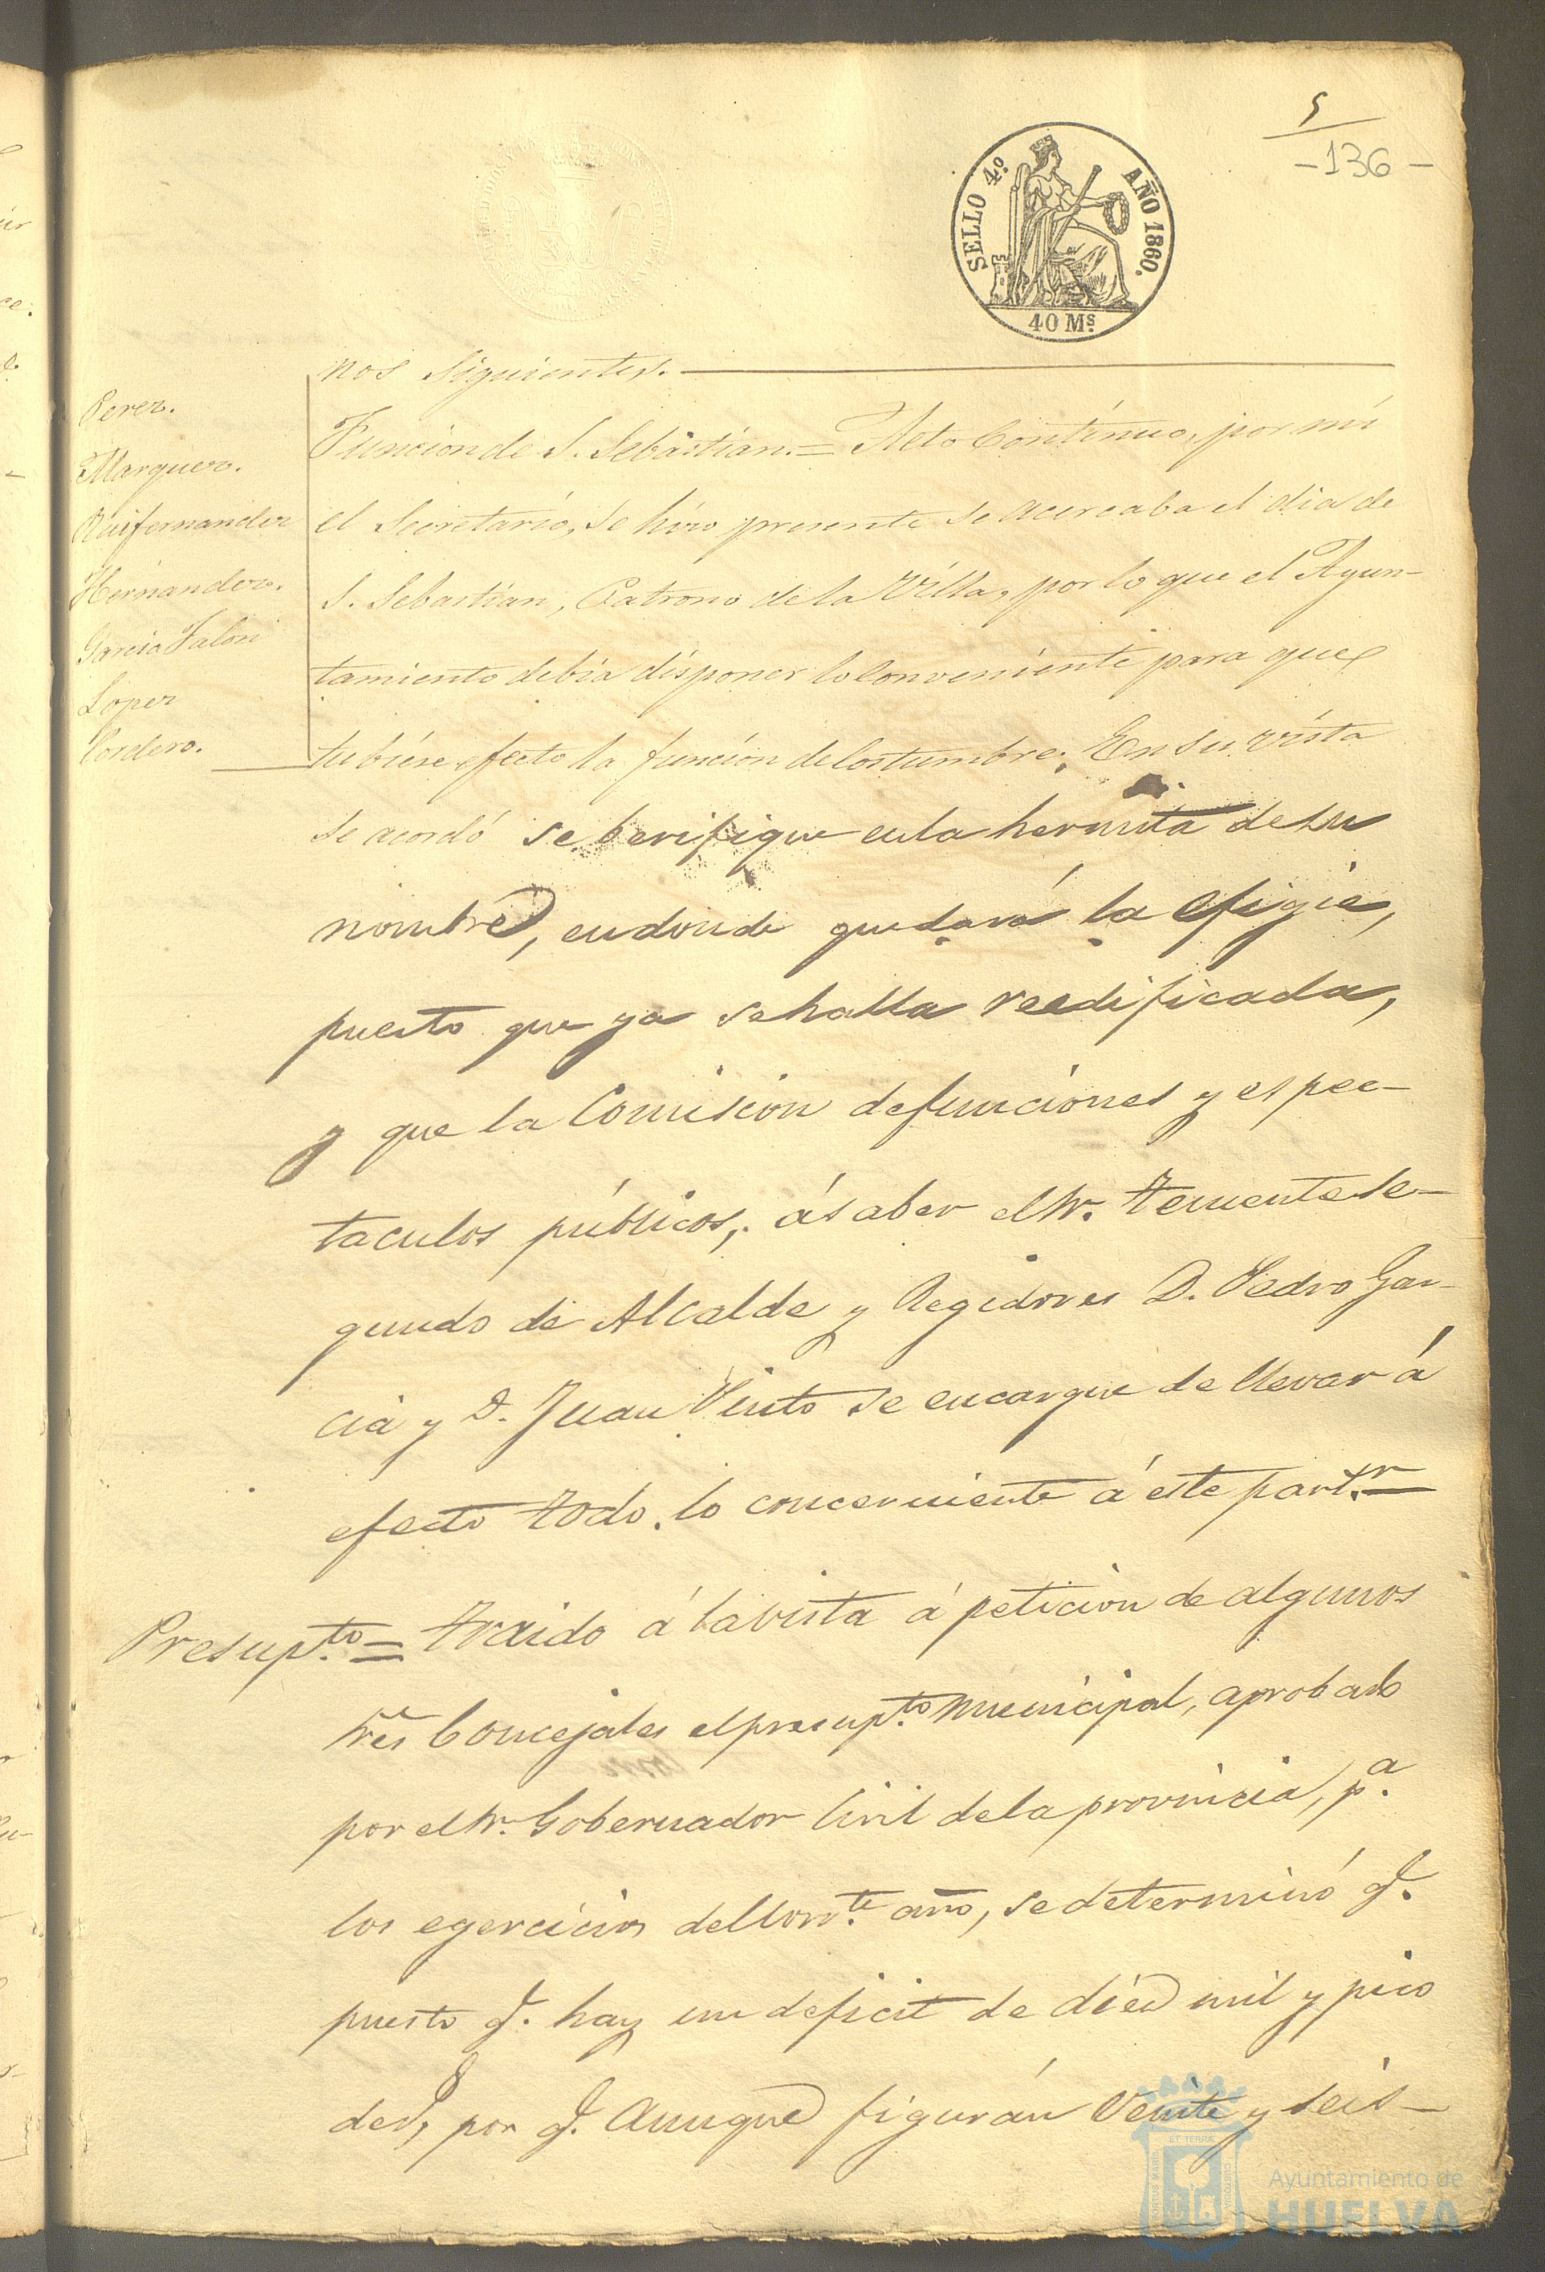 5
-136-
SELLO 4.º AÑO 1860.
40 Ms.
nos siguientes.
Perez.
Marquez.
Ruifernandez
Hernandez.
Garcia Jalon
Lopez
Cordero.
Funcion de S. Sebastian.= Acto Contínuo, por mí
el Secretario, se hizo presente se acercaba el dia de
S. Sebastian, Patrono de la Villa, por lo que el Ayun-
tamiento debia disponer lo Conveniente para que
tubiese efecto la funcion de Costumbre; En su vista
se acordó se berifique en la hermita de su
nombre, en donde quedará la efigie,
puesto que ya se halla reedificada,
y que la Comision de funciones y espec-
taculos públicos, á saber el Sr. Teniente se-
gundo de Alcalde y Regidores D. Pedro Gar-
cia y D. Juan Pinto se encargue de llevar á
efecto todo lo concerniente á este part.r=
Presup.to= Traido á la vista á peticion de algunos
Sres Concejales el presup.to Municipal, aprobado
por el Sr. Gobernador Civil de la provincia, p.a
los egercicios del Corr.te año, se determinó q.
puesto q. hay un deficit de diez mil y pico
de rs, por q. Aunque figurán Veinte y seis-
ET TERRA
Ayuntamiento de
HUELVA